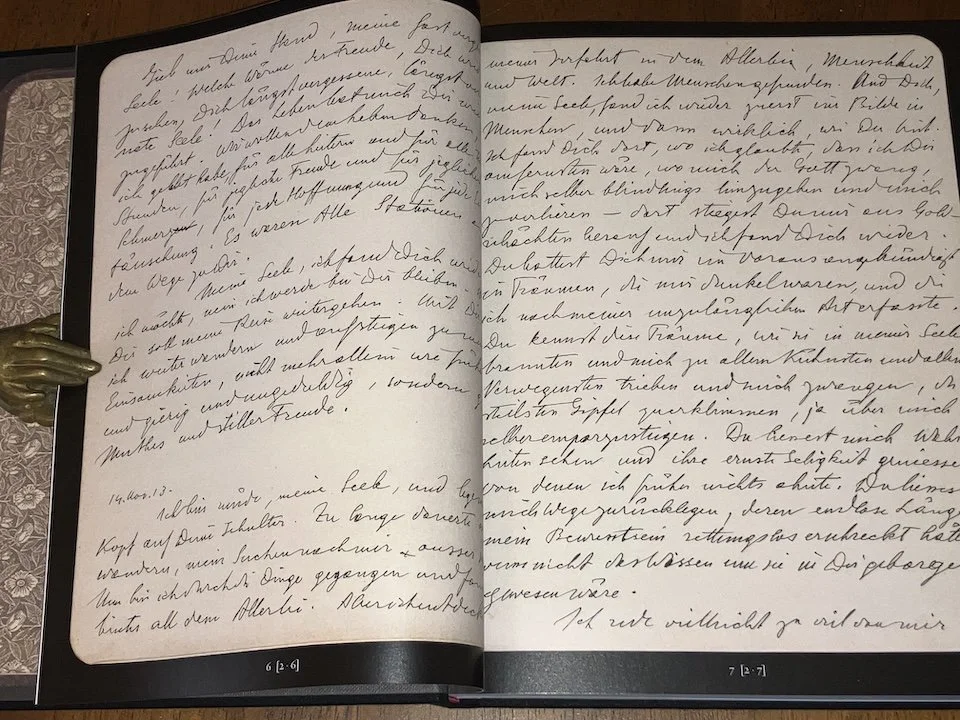 Gieb mir Deine Hand, meine fast verg
Seele! Welche Wärme der Freude, Dich wie
zusehen, Dich längst vergessene, längst v
nete Seele! Das Leben hat mich Dir wi
zugeführt. Wir wollen dem Leben danken
ich gelebt habe, für alle heitern und für alle
Stunden, für jegliche Freude und für jeglich
Schmerzen, für jede Hoffnung und für jede
täuschung. Es waren Alle Stationen
dem Wege zu Dir.
Meine Seele, ich fand Dich wied
ich möcht, nein ich werde bei Dir bleiben
Dir soll meine Reise weitergehen. Mit Di
ich weiter wandern und daufsteigen zu
Einsamkeiten, nicht mehr allein wie früh
und gierig und ungeduldig, sondern
Muthes und stiller Freude.
14. Nov. 13.
Ich bin müde, meine Seele, und leg
Kopf auf Deine Schulter. Zu lange dauerte
wandern, mein Suchen nach mir + ausser
Nun bin ich durch die Dinge gegangen und fan
hinter all dem Allerlei. Aber ich entdeck
6 [2·6]
meiner Irrfahrt in dem Allerlei, Menschheit
und Welt. Ich habe Menschen gefunden. Und Dich,
meine Seele, fand ich wieder zuerst im Bilde in
Menschen, und dann wirklich, wie Du bist.
Ich fand Dich dort, wo ich glaubte, dass ich Dir
am fernsten wäre, wo mich der Gott zwang,
mich selber blindlings hinzugehen und mich
zu verlieren — dort stiegest Du mir aus Gold-
schächten herauf und ich fand Dich wieder.
Du hattest Dich mir im Voraus angekündigt
in Träumen, die mir dunkel waren, und die
ich nach meiner unzulänglichen Art erfasste.
Du kennst diese Träume, wie sie in meiner Seele
brannten und mich zu allem Kühnsten und allem
Verwegensten trieben und mich zwangen, die
steilsten Gipfel zu erklimmen, ja über mich
selber emporzusteigen. Du liessest mich Wahr
heiten sehen und ihre ernste Seligkeit geniesse
von denen ich früher nichts ahnte. Du liesses
mich Wege zurücklegen, deren endlose Länge
mein Bewusstsein rettungslos erschreckt hätte
wenn nicht das Wissen um sie in Dir geborgen
gewesen wäre.
Ich rede vielleicht zu viel von mir
7 [2·7]